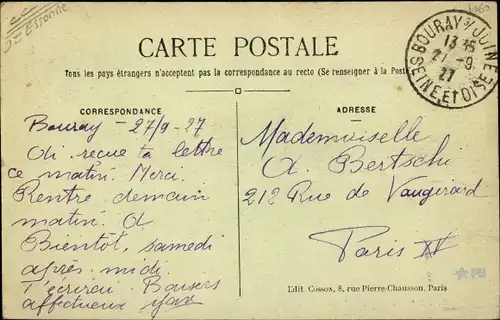 Essonne
CARTE POSTALE
Tous les pays étrangers n'acceptent pas la correspondance au recto (Se renseigner à la Poste)
BOURAY S/ JUINE
13 35
27 -9
27
SEINE ET OISE
CORRESPONDANCE
ADRESSE
Bouray - 27/9-27
Ai reçue ta lettre
ce matin. Merci.
Rentre demain
matin. A
Bientôt, samedi
après midi
T'écrirai. Baisers
affectueux
Mademoiselle
A. Bertschi
212 Rue de Vaugirard
Paris XV
Edit. Cosson, 8, rue Pierre-Chausson, Paris